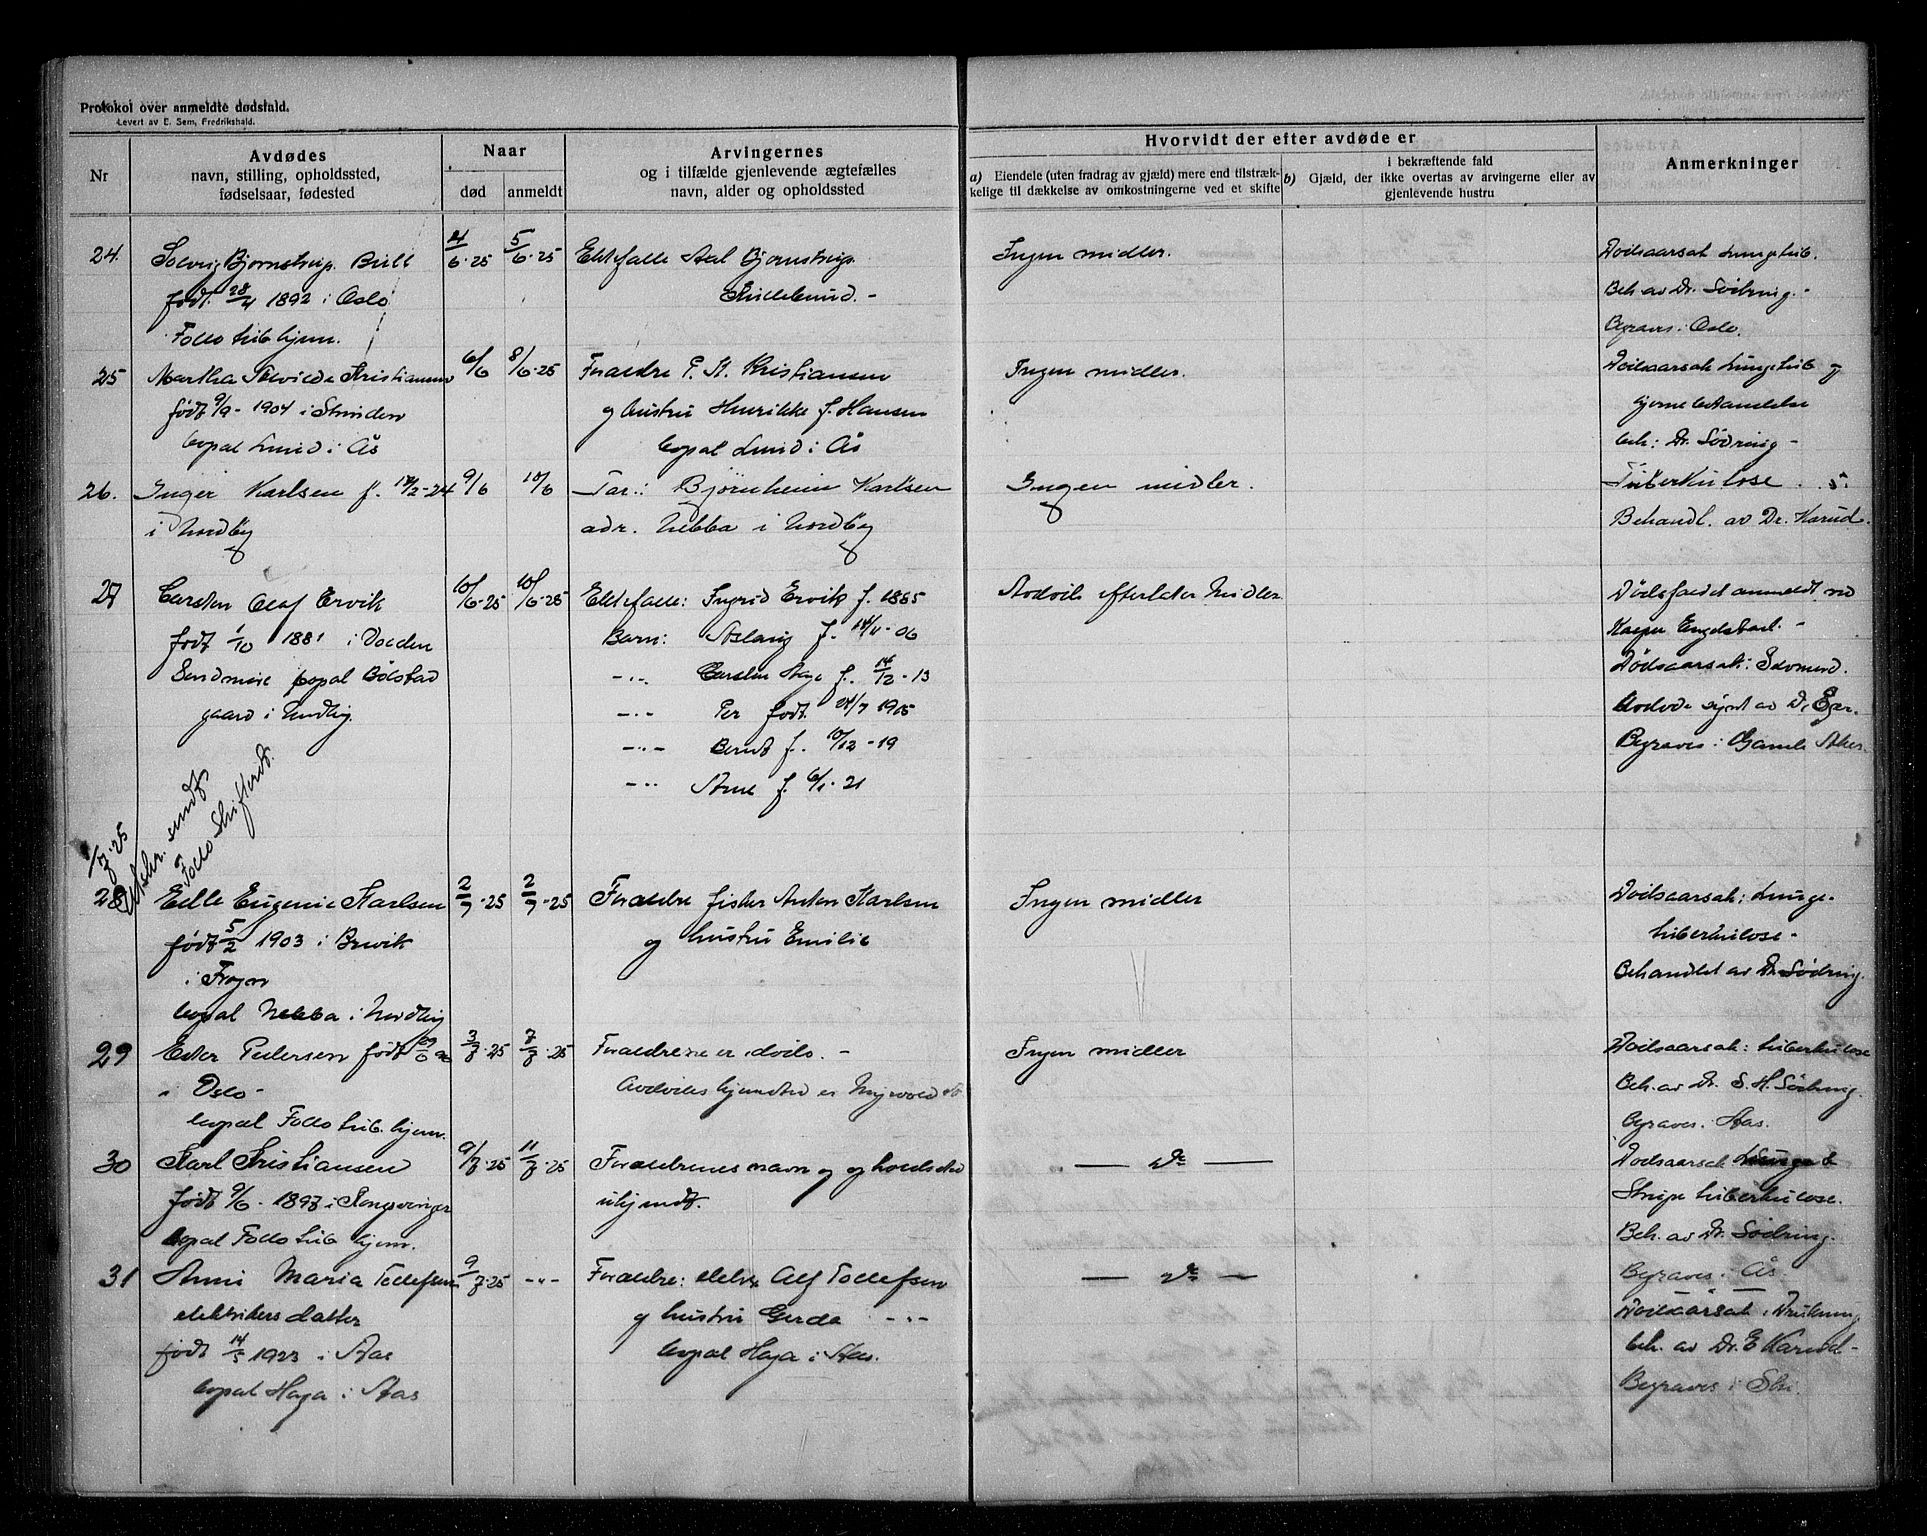 Protokol over anmeldte dødsfald.
Levert av E. Sem, Fredrikshald.
Nr
Avdødes
navn, stilling, opholdssted,
fødselsaar, fødested
Naar
død
anmeldt
Arvingernes
og i tilfælde gjenlevende ægtefælles
navn, alder og opholdssted
Hvorvidt der efter avdøde er
a) Eiendele (uten fradrag av gjæld) mere end tilstræk-
kelige til dækkelse av omkostningerne ved et skifte
i bekræftende fald
b) Gjæld, der ikke overtas av arvingerne eller av
gjenlevende hustru
Anmerkninger
24. Solveig Bjørnstrup Bull 4/6-25 5/6-25 Ektefælle Bjørnstrup Ingen midler. Dødsaarsak Lungetub.
født 28/4 1892 i Oslo Beh. av Dr. Södring.-
Follo tub hjem. Begraves i Oslo.
25 Martha Kristiansen 6/6 8/6-25 Foraeldre P. Kristiansen Ingen midler. Dødsaarsak Lungetub og
født 9/9-1904 i og hustru Henrikke f. Hansen
bopæl Lund i Ås bopæl Lund i Ås beh: Dr. Södring-
26. Inger Karlsen f. -24 9/6 10/6 Far: Bjørnheim Karlsen Ingen midler. Tuberkulose.
i Nordby adr. Nebba i Nordby Behandl. av Dr. Karud.
27 Carsten Olaf Ervik 10/6-25 10/6-25 Ektefælle: Ingrid Ervik f. 1885 Avdøde efterlater Midler Dödsfaldet anmeldt ved
født 1/10 1881 i Volden Barn: Aslaug f. -06 Engelstad.-
bopæl Bölstad -"- Carsten Aage f. 14/12-13 Dødsaarsak: Selvmord.
gaard i Nordby. -"- Per født 24/7 1905 Avdøde synt av Dr. Eger.
-"- Bernt f. 10/12-19 Begraves i Gamle Aker.
-"- Arne f. 6/1-21
1/7-25
Utskr. sendt
Follo Skifterett.
28 Elle Eugenie Karlsen 2/7-25 2/7-25 Foraeldre fisker Anton Karlsen Ingen midler Dødsaarsak: Lunge-
født 5/2 1903 i Brevik og hustru Emilie tuberkulose-
i Frogn Behandlet av Dr. Södring.
bopæl Nebba i Nordby
29 Ester Pedersen født 3/7-25 7/7-25 Foraeldrene er døds.- Ingen midler Dødsaarsak: tuberkulose
i Oslo- Avdødes hjemsted er Beh. av Dr. S. H. Södring.
bopæl Follo tub. hjem. Begraves. Aas.
30 Karl Kristiansen 9/7-25 11/7-25 Foraeldrenes navn og opholdssted — Do — Dødsaarsak
født 9/6-1897 i Kongsvinger ukjendt. Strupe tuberkulose.
bopæl Follo tub hjem. Beh. av Dr. Södring.
Begraves. Ås.
31 Anni Maria Tollefsen 9/7-25 -"- Foraeldre: elektr Alf Tollefsen — Do —
elektrikers datter og hustru Gerda -"- Dødsaarsak: Drukning
født 14/5 1923 i Aas bopæl Haga i Aas. beh. av Dr. E Karud-
bopæl Haga i Aas Begraves i Ski.